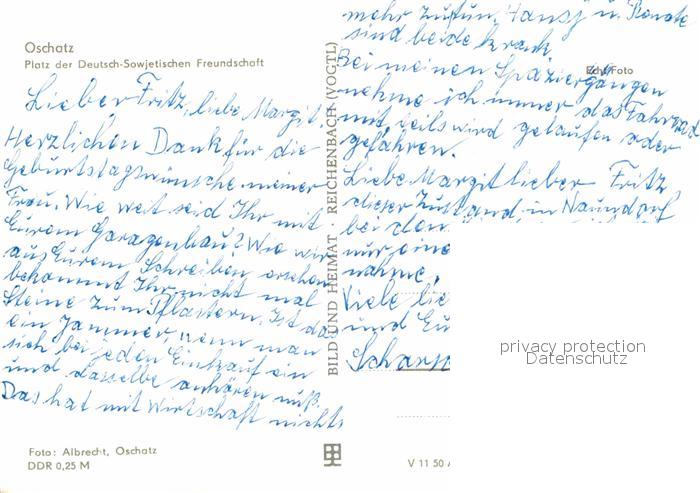 Oschatz
Platz der Deutsch-Sowjetischen Freundschaft
Lieber Fritz, liebe Margit,
Herzlichen Dank für die
Geburtstagswünsche meiner
Frau. Wie weit seid Ihr mit
Eurem Garagenbau? Wie wir
aus Eurem Schreiben ersehen
bekommt Ihr nicht mal
Steine zum Pflastern. Ist das
ein Jammer, wenn man
sich bei jeden Einkauf ein
und dasselbe anhören muß.
Das hat mit Wirtschaft nichts
Foto: Albrecht, Oschatz
DDR 0,25 M
BILD UND HEIMAT · REICHENBACH (VOGTL)
mehr zu tun. Hansj u. Renate
sind beide krank
Echt Foto
Bei meinen Spaziergängen
nehme ich immer das Fahrrad
mit, teils wird gelaufen oder
gefahren.
Liebe Margit lieber Fritz,
dieser Zustand, in Naundorf
bei den
nur eine
nahme,
Viele lie
und Eu
V 11 50
privacy protection
Datenschutz